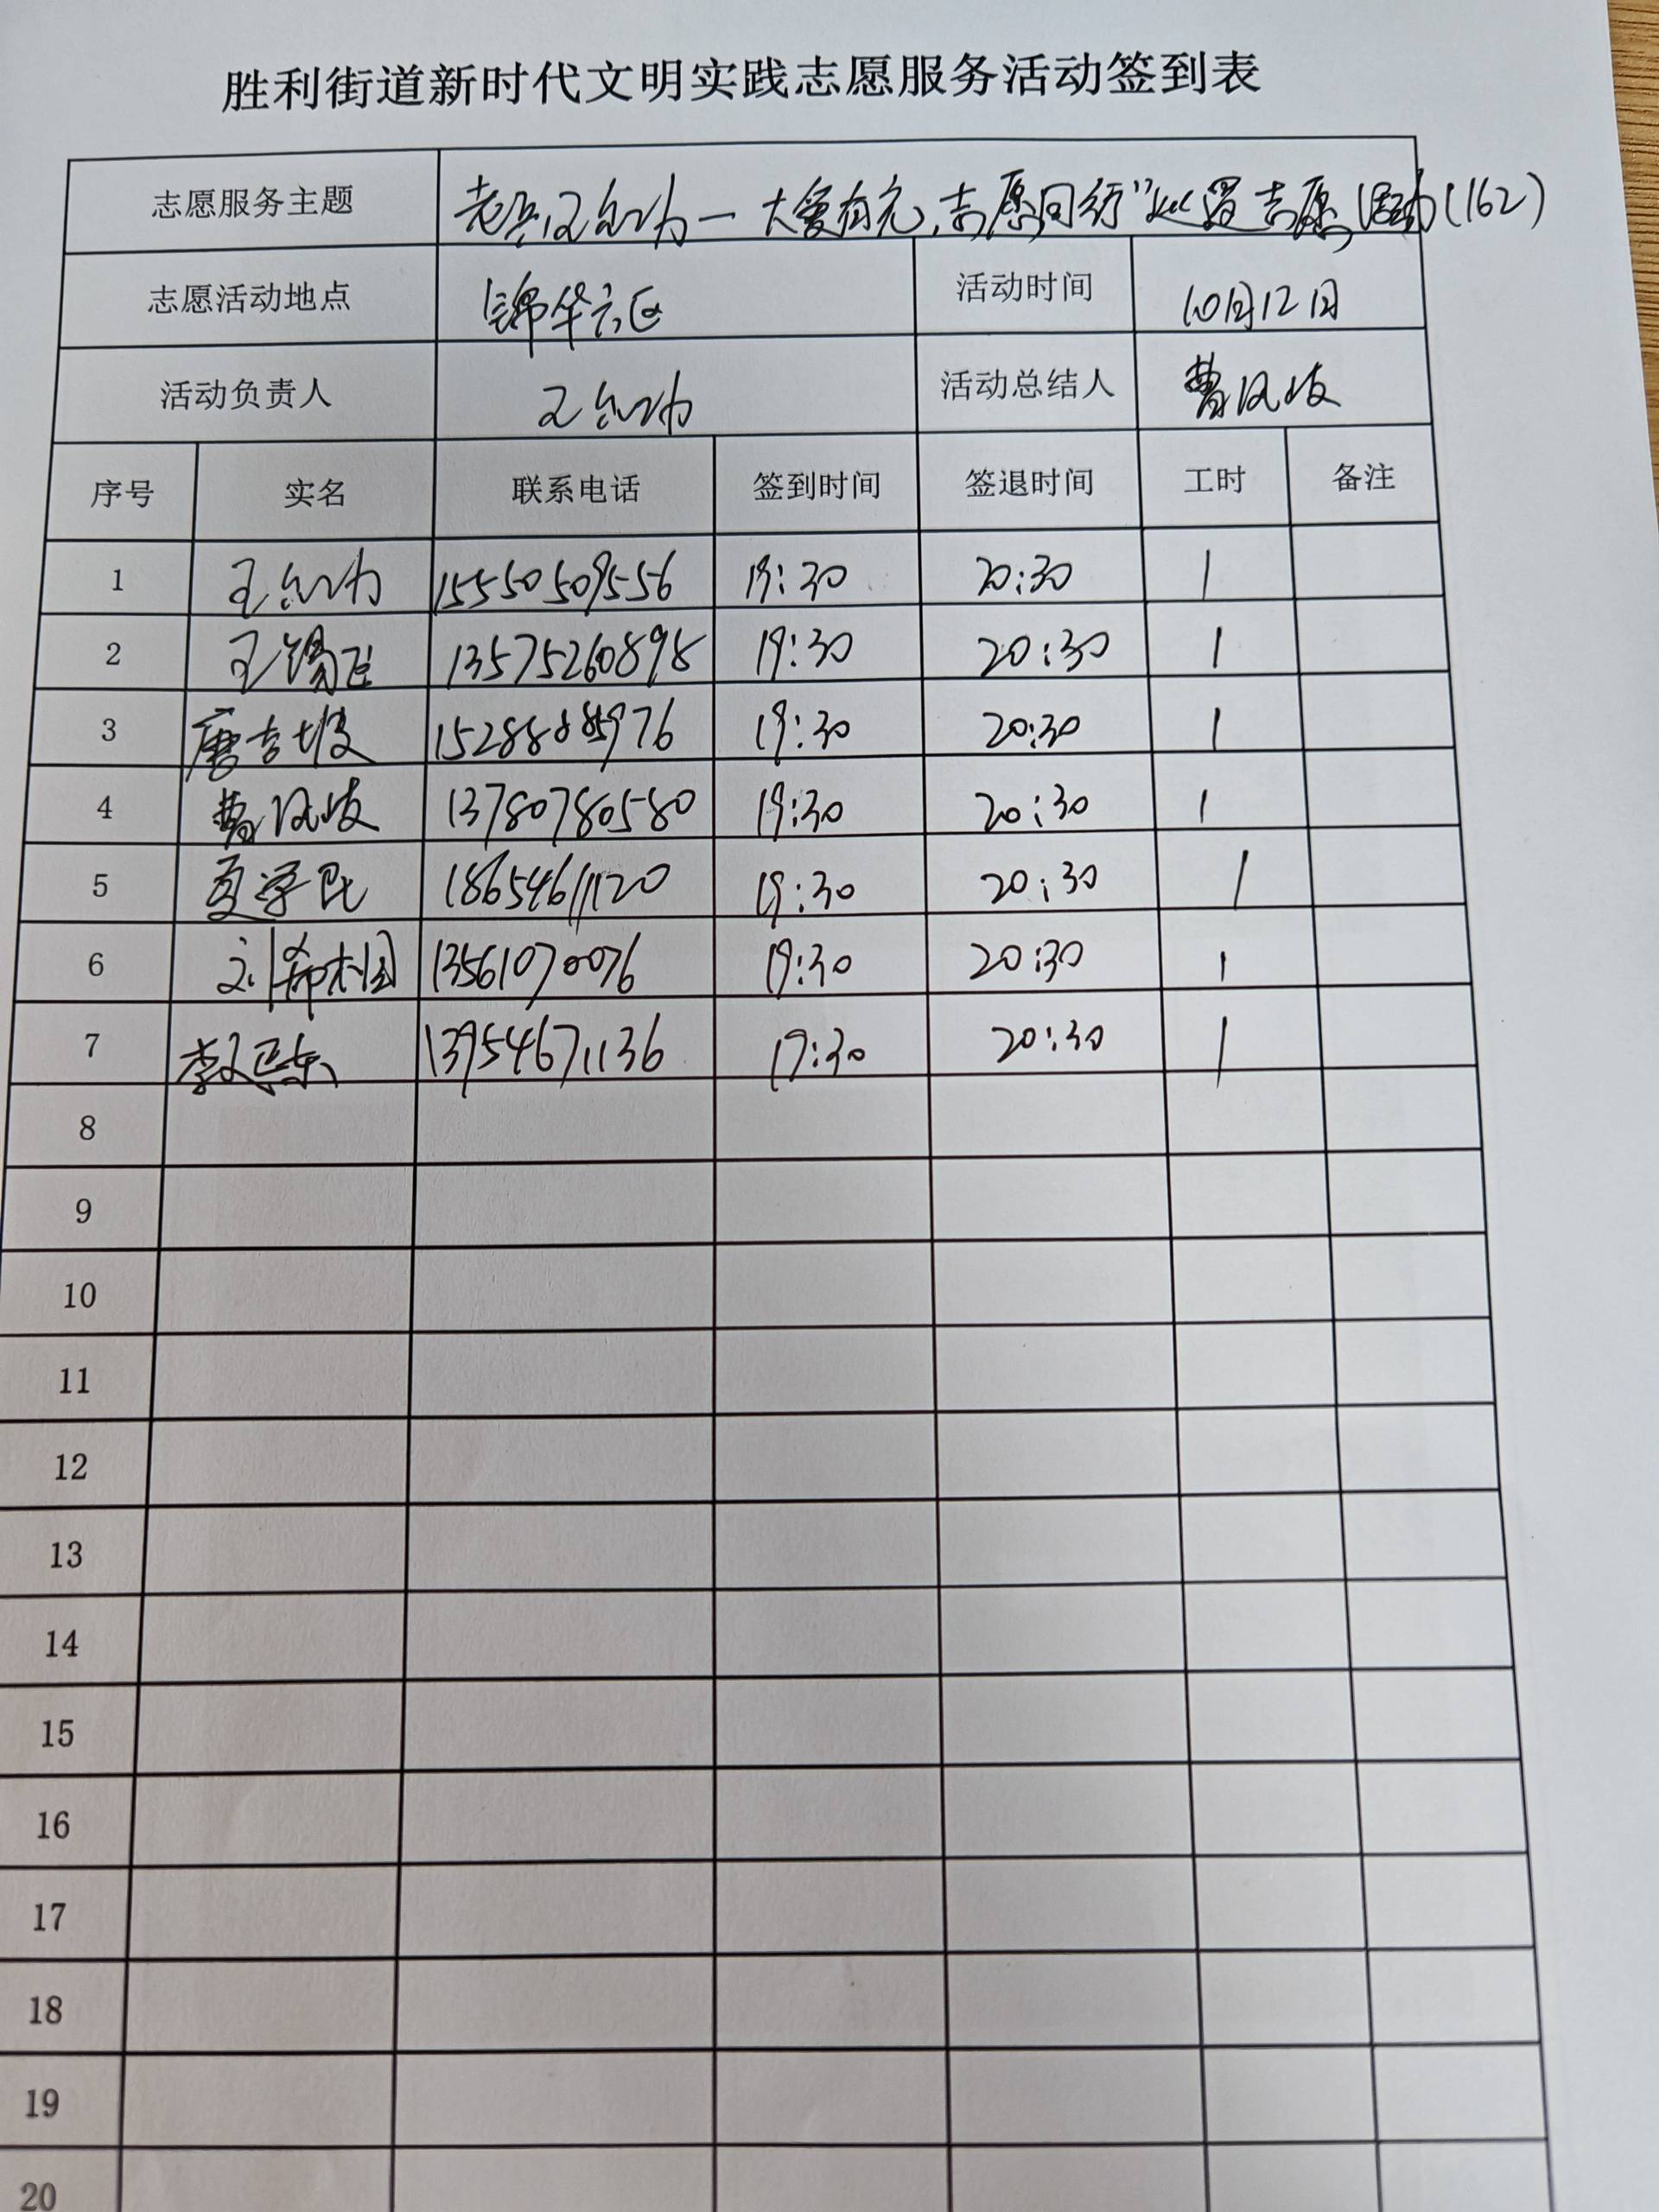 胜利街道新时代文明实践志愿服务活动签到表
志愿服务主题 大爱有元,志愿同行" 志愿活动(162)
志愿活动地点 锦华六区 活动时间 10月12日
活动负责人 活动总结人 曹
序号 实名 联系电话 签到时间 签退时间 工时 备注
1 王 15550509556 19:30 20:30 1
2 王锡 13575260898 19:30 20:30 1
3 唐吉坡 19:30 20:30 1
4 曹 13780780580 19:30 20:30 1
5 夏学民 18654611120 19:30 20:30 1
6 刘希 13561070076 19:30 20:30 1
7 李 13954671136 19:30 20:30 1
8
9
10
11
12
13
14
15
16
17
18
19
20